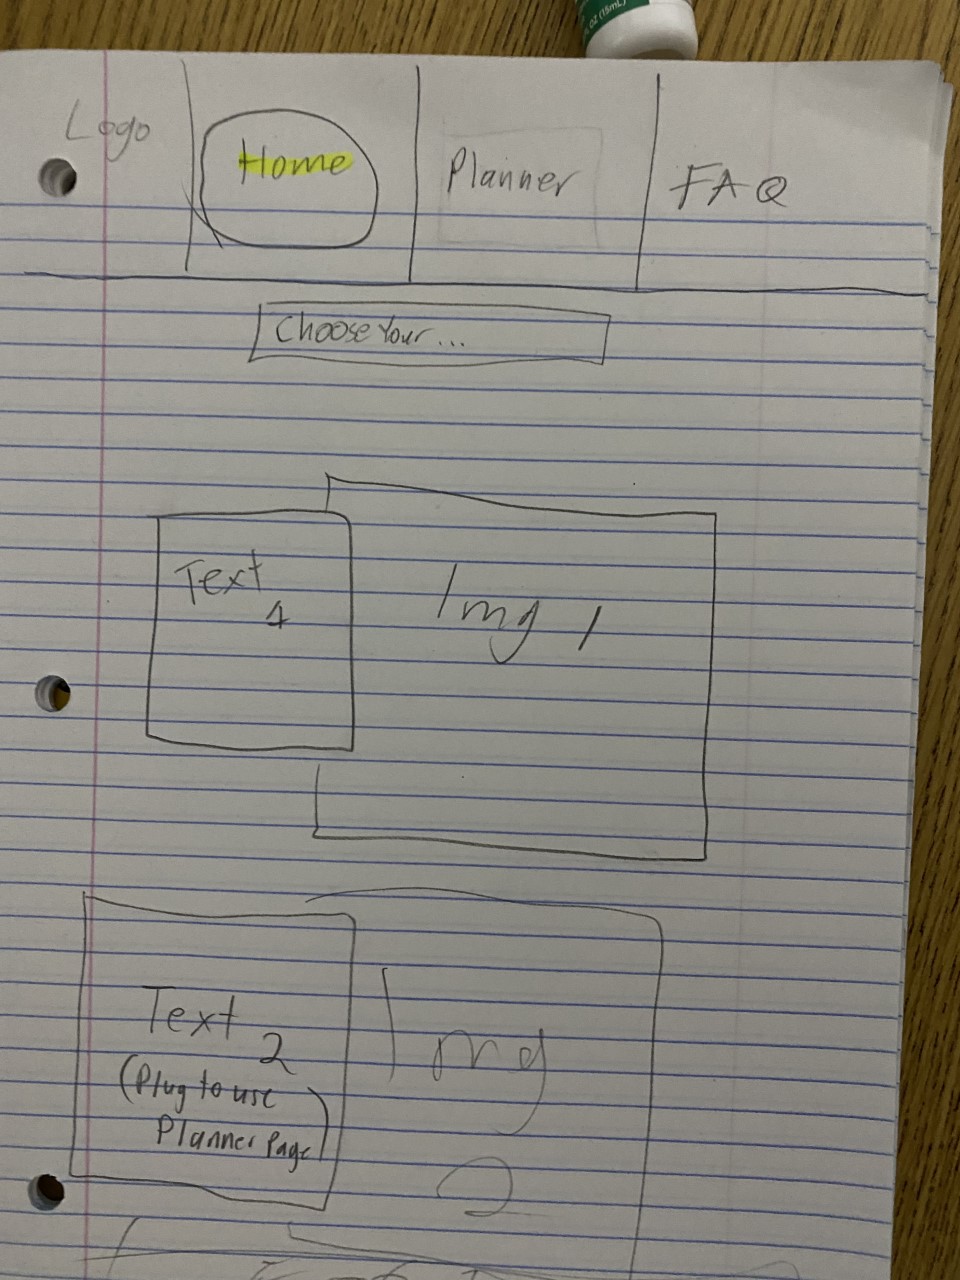 oz (15mL)
Logo
Home
Planner
FAQ
Choose Your ...
Text
1
Img 1
Text 2
(Plug to use
Planner Page)
Img
2